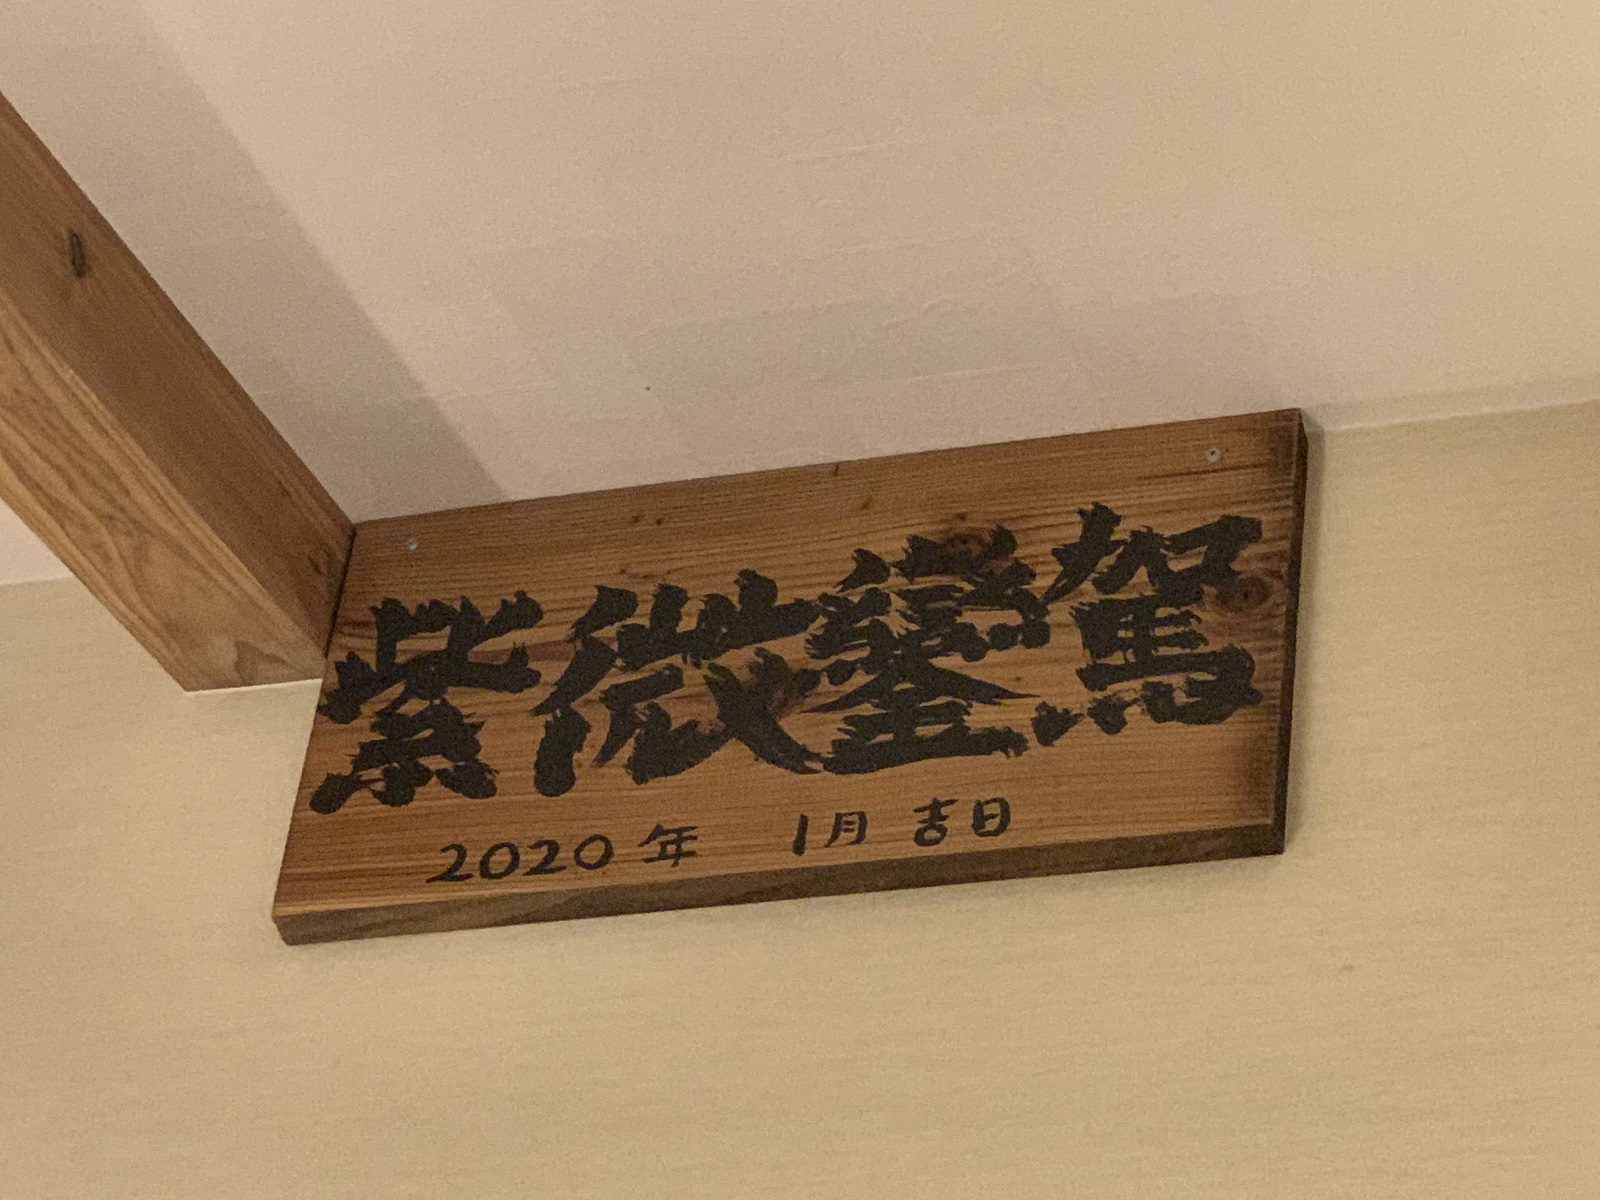 紫微鑾駕
2020年 1月 吉日